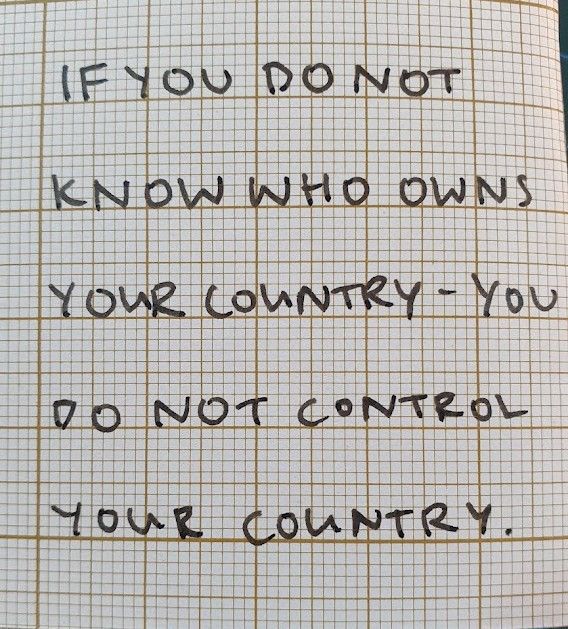 IF YOU DO NOT
KNOW WHO OWNS
YOUR COUNTRY - YOU
DO NOT CONTROL
YOUR COUNTRY.